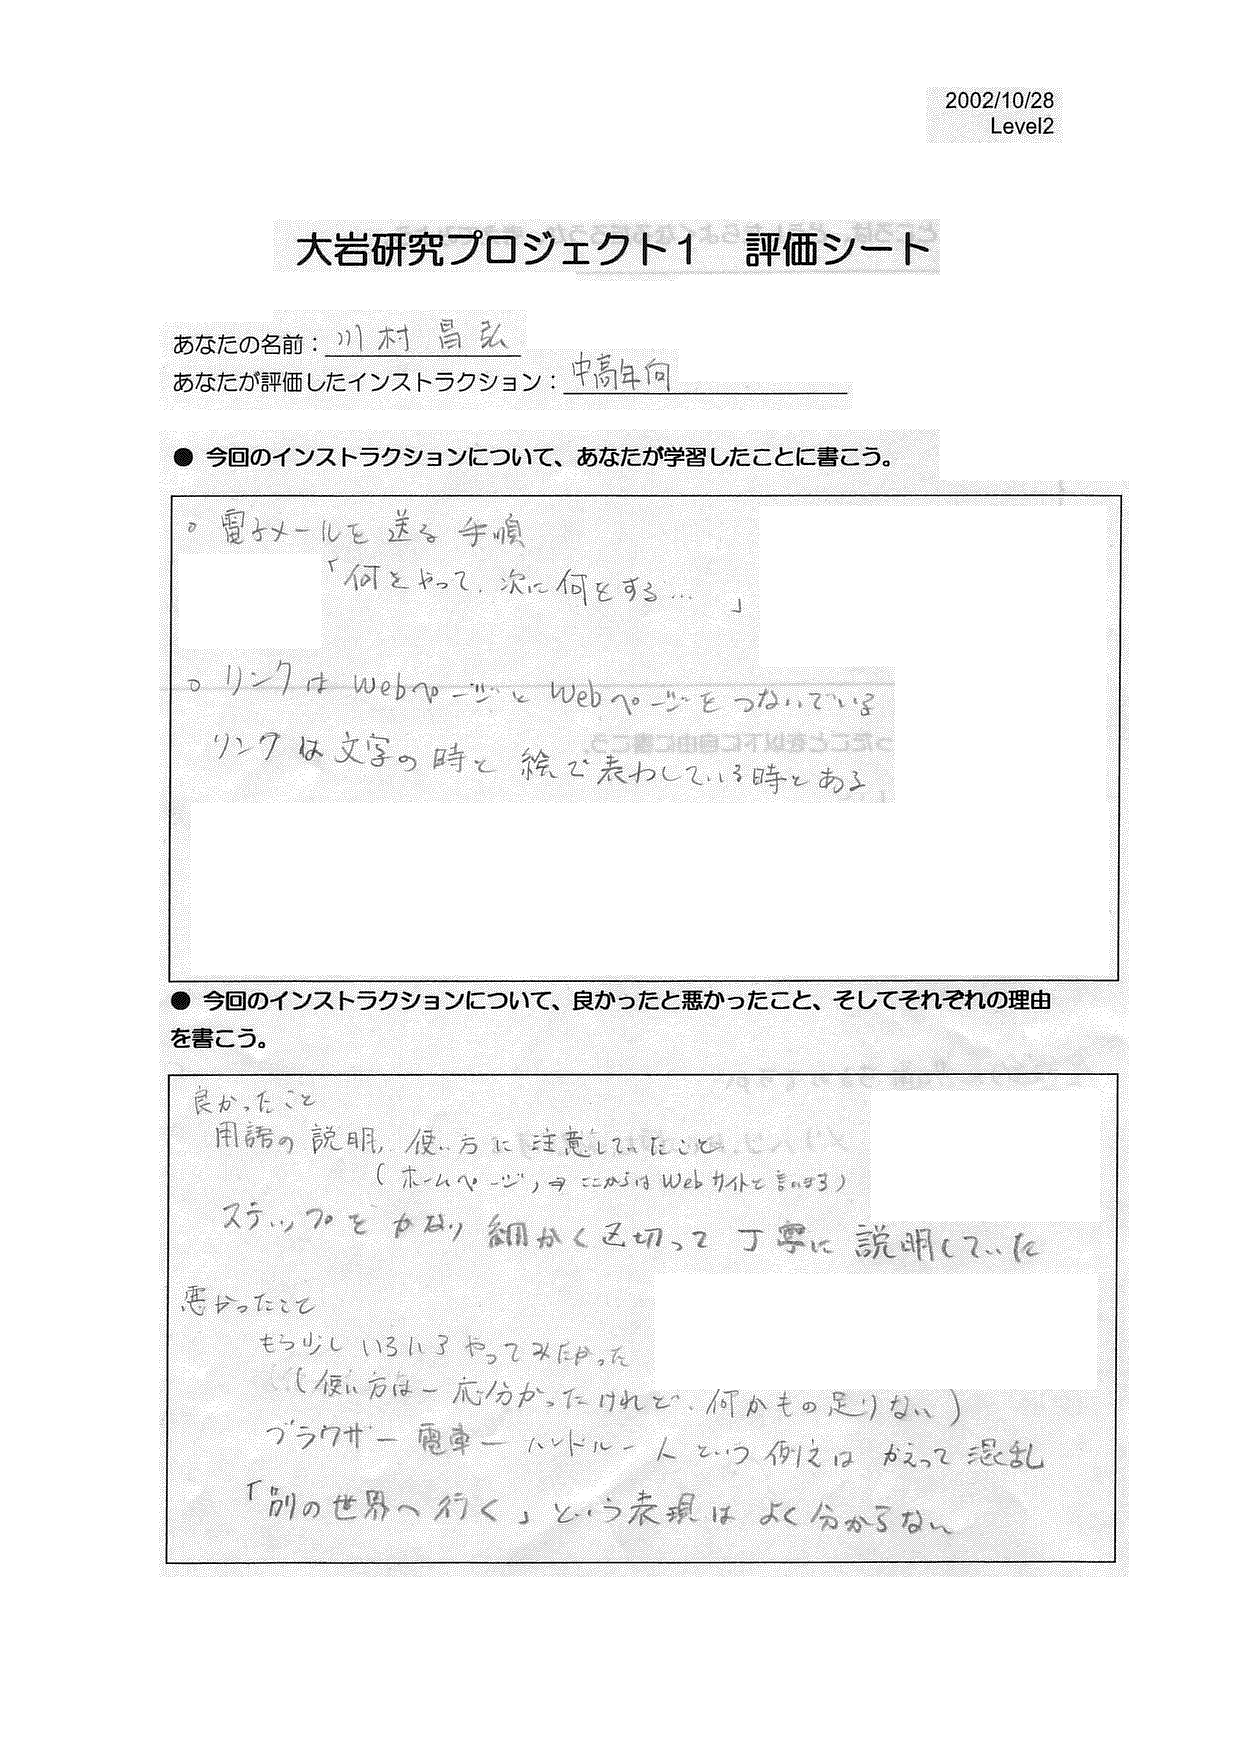 2002/10/28
Level2
大岩研究プロジェクト1　評価シート
あなたの名前：川村 昌弘
あなたが評価したインストラクション：中高年向
● 今回のインストラクションについて、あなたが学習したことに書こう。
○ 電子メールを 送る 手順
「何をやって、次に何をする… 」
○ リンクは Webページと Webページを つないでいる
リンクは文字の時と 絵で表わしている時とある
● 今回のインストラクションについて、良かったと悪かったこと、そしてそれぞれの理由
を書こう。
良かったこと
用語の 説明, 使い方に 注意していたこと
( ホームページ, ⇒ ここからは Webサイトと言います)
ステップを かなり 細かく区切って 丁寧に 説明していた
悪かったこと
もう少し いろいろ やってみたかった
(使い方は一応分かったけれど、何かもの足りない)
ブラウザー 電車ー ハンドルー 人 という 例えは かえって 混乱
「別の世界へ行く」という表現は よく分からない